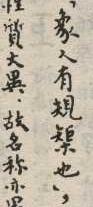 「象人有規榘也」，
性質大異，故名称亦異